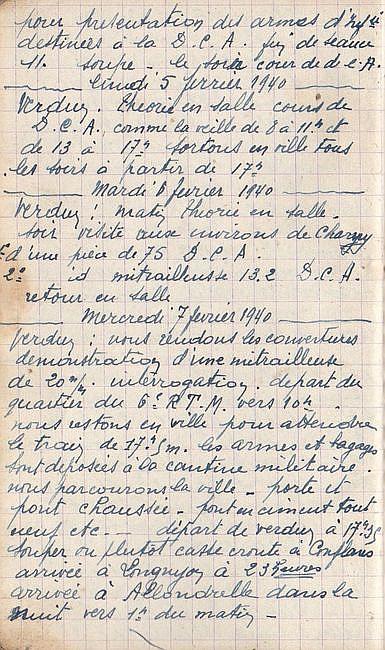 pour présentation des armes d'Infie
destinées à la D.C.A. puis séance
11h soupe - le soir cours de D.C.A.
Lundi 5 février 1940
Verdun. théorie en salle cours de
D.C.A. comme la veille de 8 à 11h et
de 13 à 17h sortons en ville tous
les soirs à partir de 17h
Mardi 6 février 1940
Verdun : matin théorie en salle.
soir visite aux environs de Charny
1° d'une pièce de 75 D.C.A.
2° id mitrailleuse 13.2 D.C.A.
retour en salle
Mercredi 7 février 1940
Verdun : nous rendons les couvertures
démonstration d'une mitrailleuse
de 20m/m. interrogation. départ du
quartier du 6e R.T.M. vers 10h
nous restons en ville pour attendre
le train de 17h5m. les armes et bagages
sont déposées à la cantine militaire.
nous parcourons la ville - porte et
pont chaussée - pont en ciment tout
neuf etc - départ de Verdun à 17h
souper ou plutôt casse croute à Conflans
arrivée à Longuyon à 23 heures
arrivée à Allondrelle dans la
nuit vers 1h du matin -